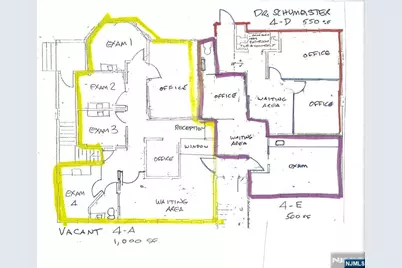 DR. SCHUMEISTER
4-D
550 SF
EXAM 1
OFFICE
OFFICE
EXAM 2
OFFICE
WAITING
AREA
OFFICE
EXAM 3
RECEPTION
WINDOW
WAITING
AREA
OFFICE
EXAM
EXAM
4
WAITING
AREA
4-E
500 SF
VACANT 4-A
1,000 SF
NJMLS